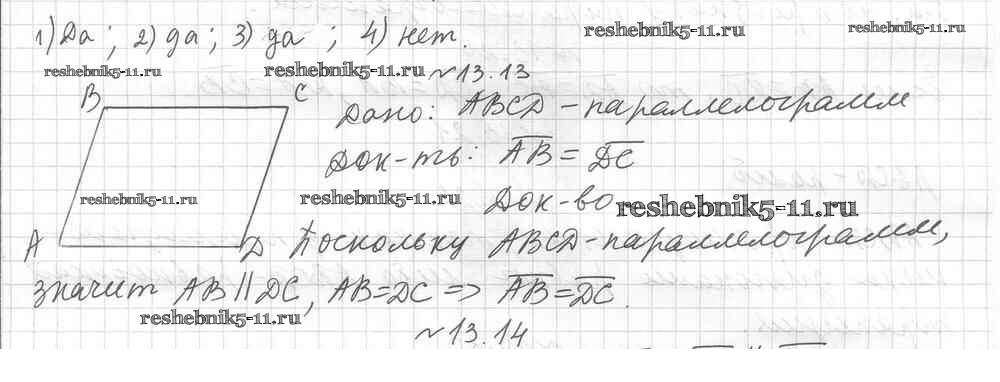 1) Да ; 2) да ; 3) да ; 4) нет.
reshebnik5-11.ru
reshebnik5-11.ru
reshebnik5-11.ru
reshebnik5-11.ru
№13.13
B C
Дано: ABCD - параллелограмм
Док-ть: A̅B̅ = D̅C̅
reshebnik5-11.ru
reshebnik5-11.ru
Док-во
reshebnik5-11.ru
A D
Поскольку ABCD - параллелограмм,
значит AB || DC, AB = DC => A̅B̅ = D̅C̅.
reshebnik5-11.ru
№13.14